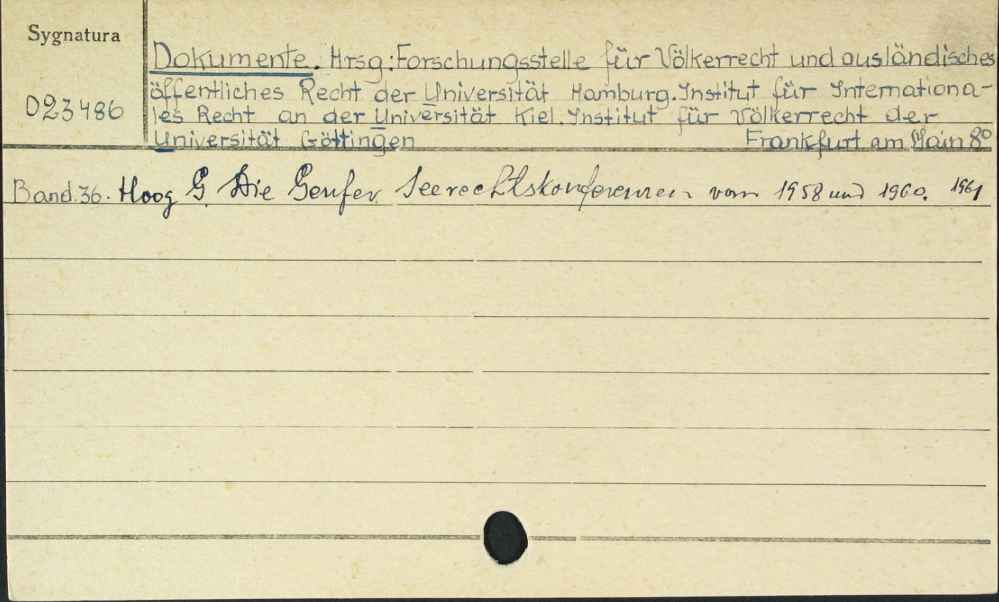 Sygnatura
023486
Dokumente. Hrsg: Forschungsstelle für Völkerrecht und ausländisches
öffentliches Recht der Universität Hamburg. Institut für Internationa-
les Recht an der Universität Kiel. Institut für Völkerrecht der
Universität Göttingen Frankfurt am Main 8°
Band 36. Hoog G. Die Genfer Seerechtskonferenzen vom 1958 und 1960. 1961